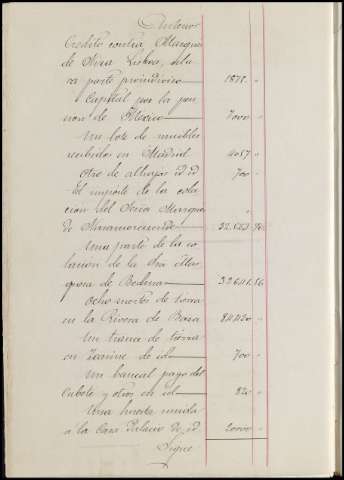 Anterior
Credito contra, Marques
de Oliva Lisboa, por la
parte proindivisa — 1875. "
Capital por la pen
sion de Mexico — 7000 "
Un lote de muebles
recibidos en Madrid 4057 "
Otro de alhajas id id 700 "
El importe de la cola
cion del Señor Marques
de
Una parte de la co
lacion de la Sra Mar
quesa de Bedma — 32641.56
Ocho suertes de tierra
en la Rivera de Baza 84420 "
Un trance de tierra
en de id — 700 "
Un bancal pago del
Cubete y otros en id 824 "
Una huerta unida
á la Casa Palacio de id 20000 "
Sigue